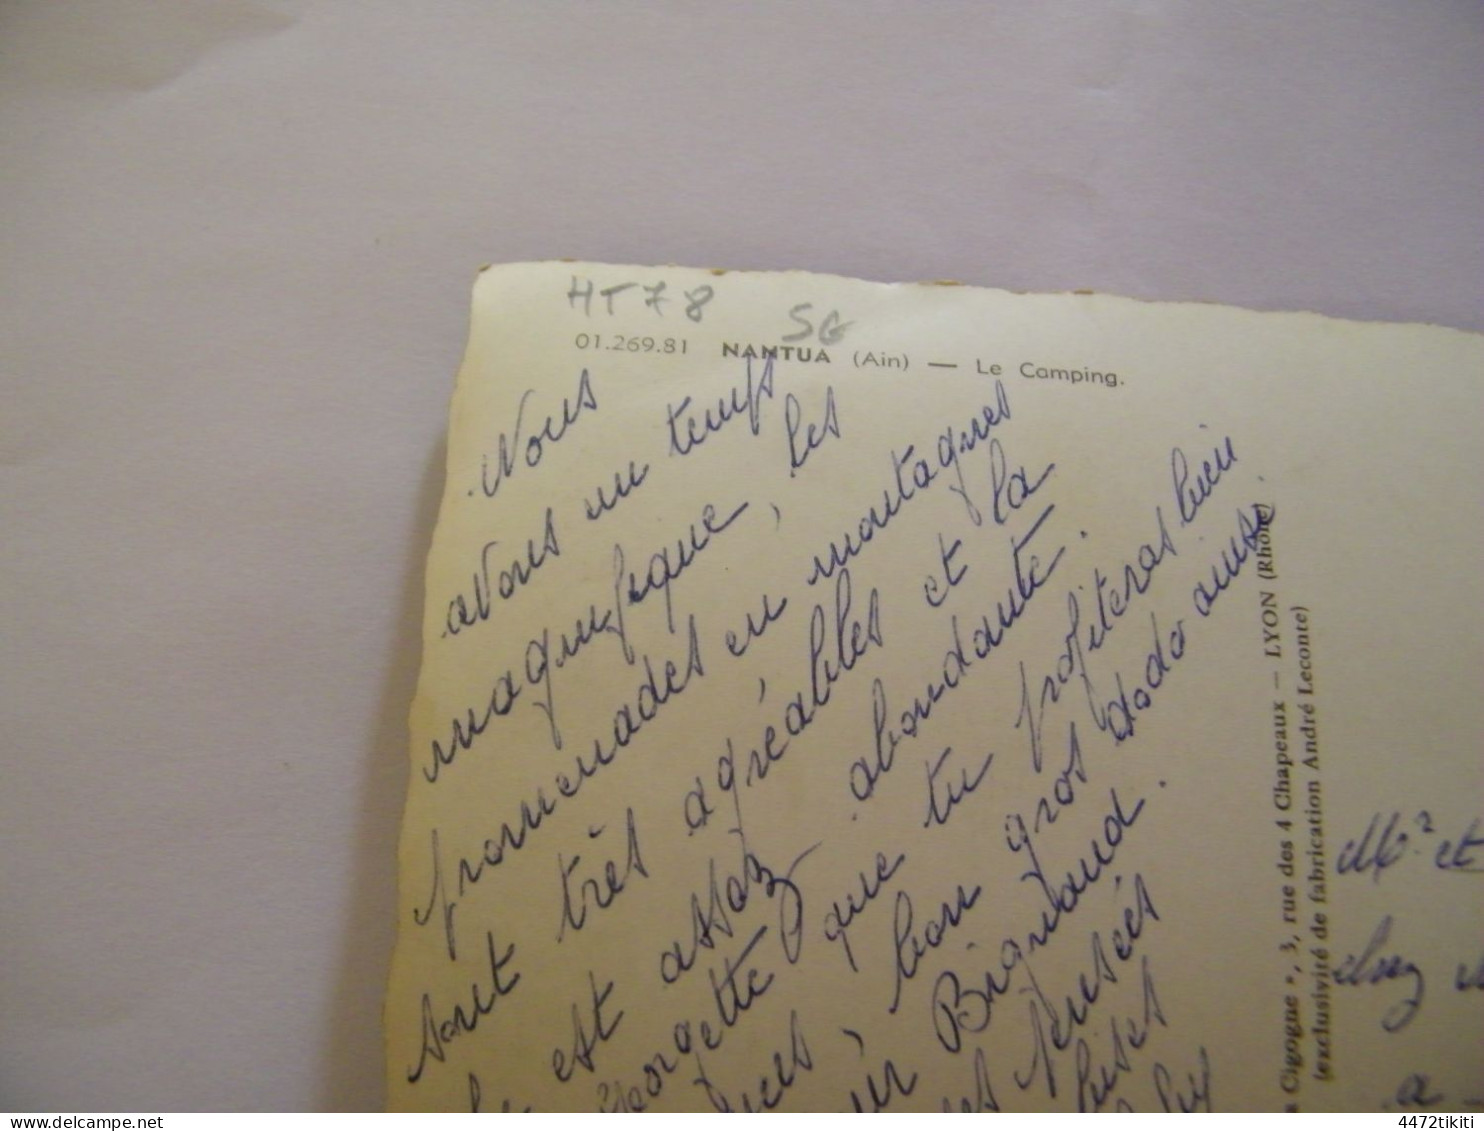 HT78 SG
01.269.81 NANTUA (Ain) — Le Camping.
Nous
avons un temps
magnifique, les
promenades en montagnes
sont très agréables et la
est assez abondante.
Georgette que tu profiteras bien
bon gros dodo aussi
Bignand.
pensées
LYON (Rhône)
Cigogne », 3, rue des 4 Chapeaux — LYON (Rhône)
(exclusivité de fabrication André Lecomte)
Mr et
chez
a
www.delcampe.net
4472tikiti